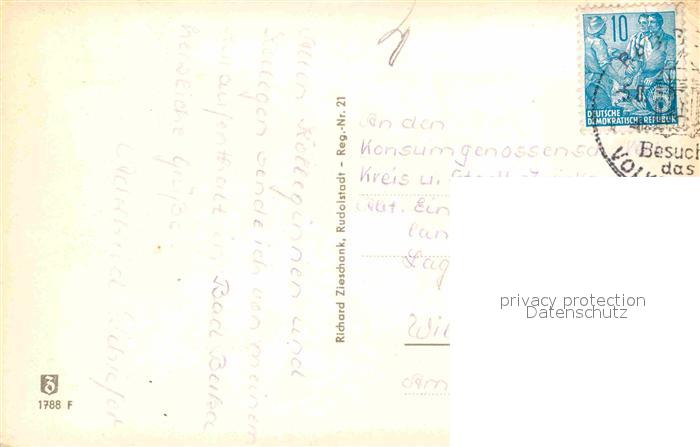 Allen Kolleginnen und
Kollegen sende ich von meinem
Kuraufenthalt in Bad Berka
herzliche Grüße.
Richard Zieschank, Rudolstadt - Reg.-Nr. 21
1788 F
10
DEUTSCHE
DEMOKRATISCHE REPUBLIK
Besuch
das
VOLK
An den
Konsumgenossensch
Kreis u. Stadt
Abt. Ein
lan
Lag
Wil
Am
privacy protection
Datenschutz